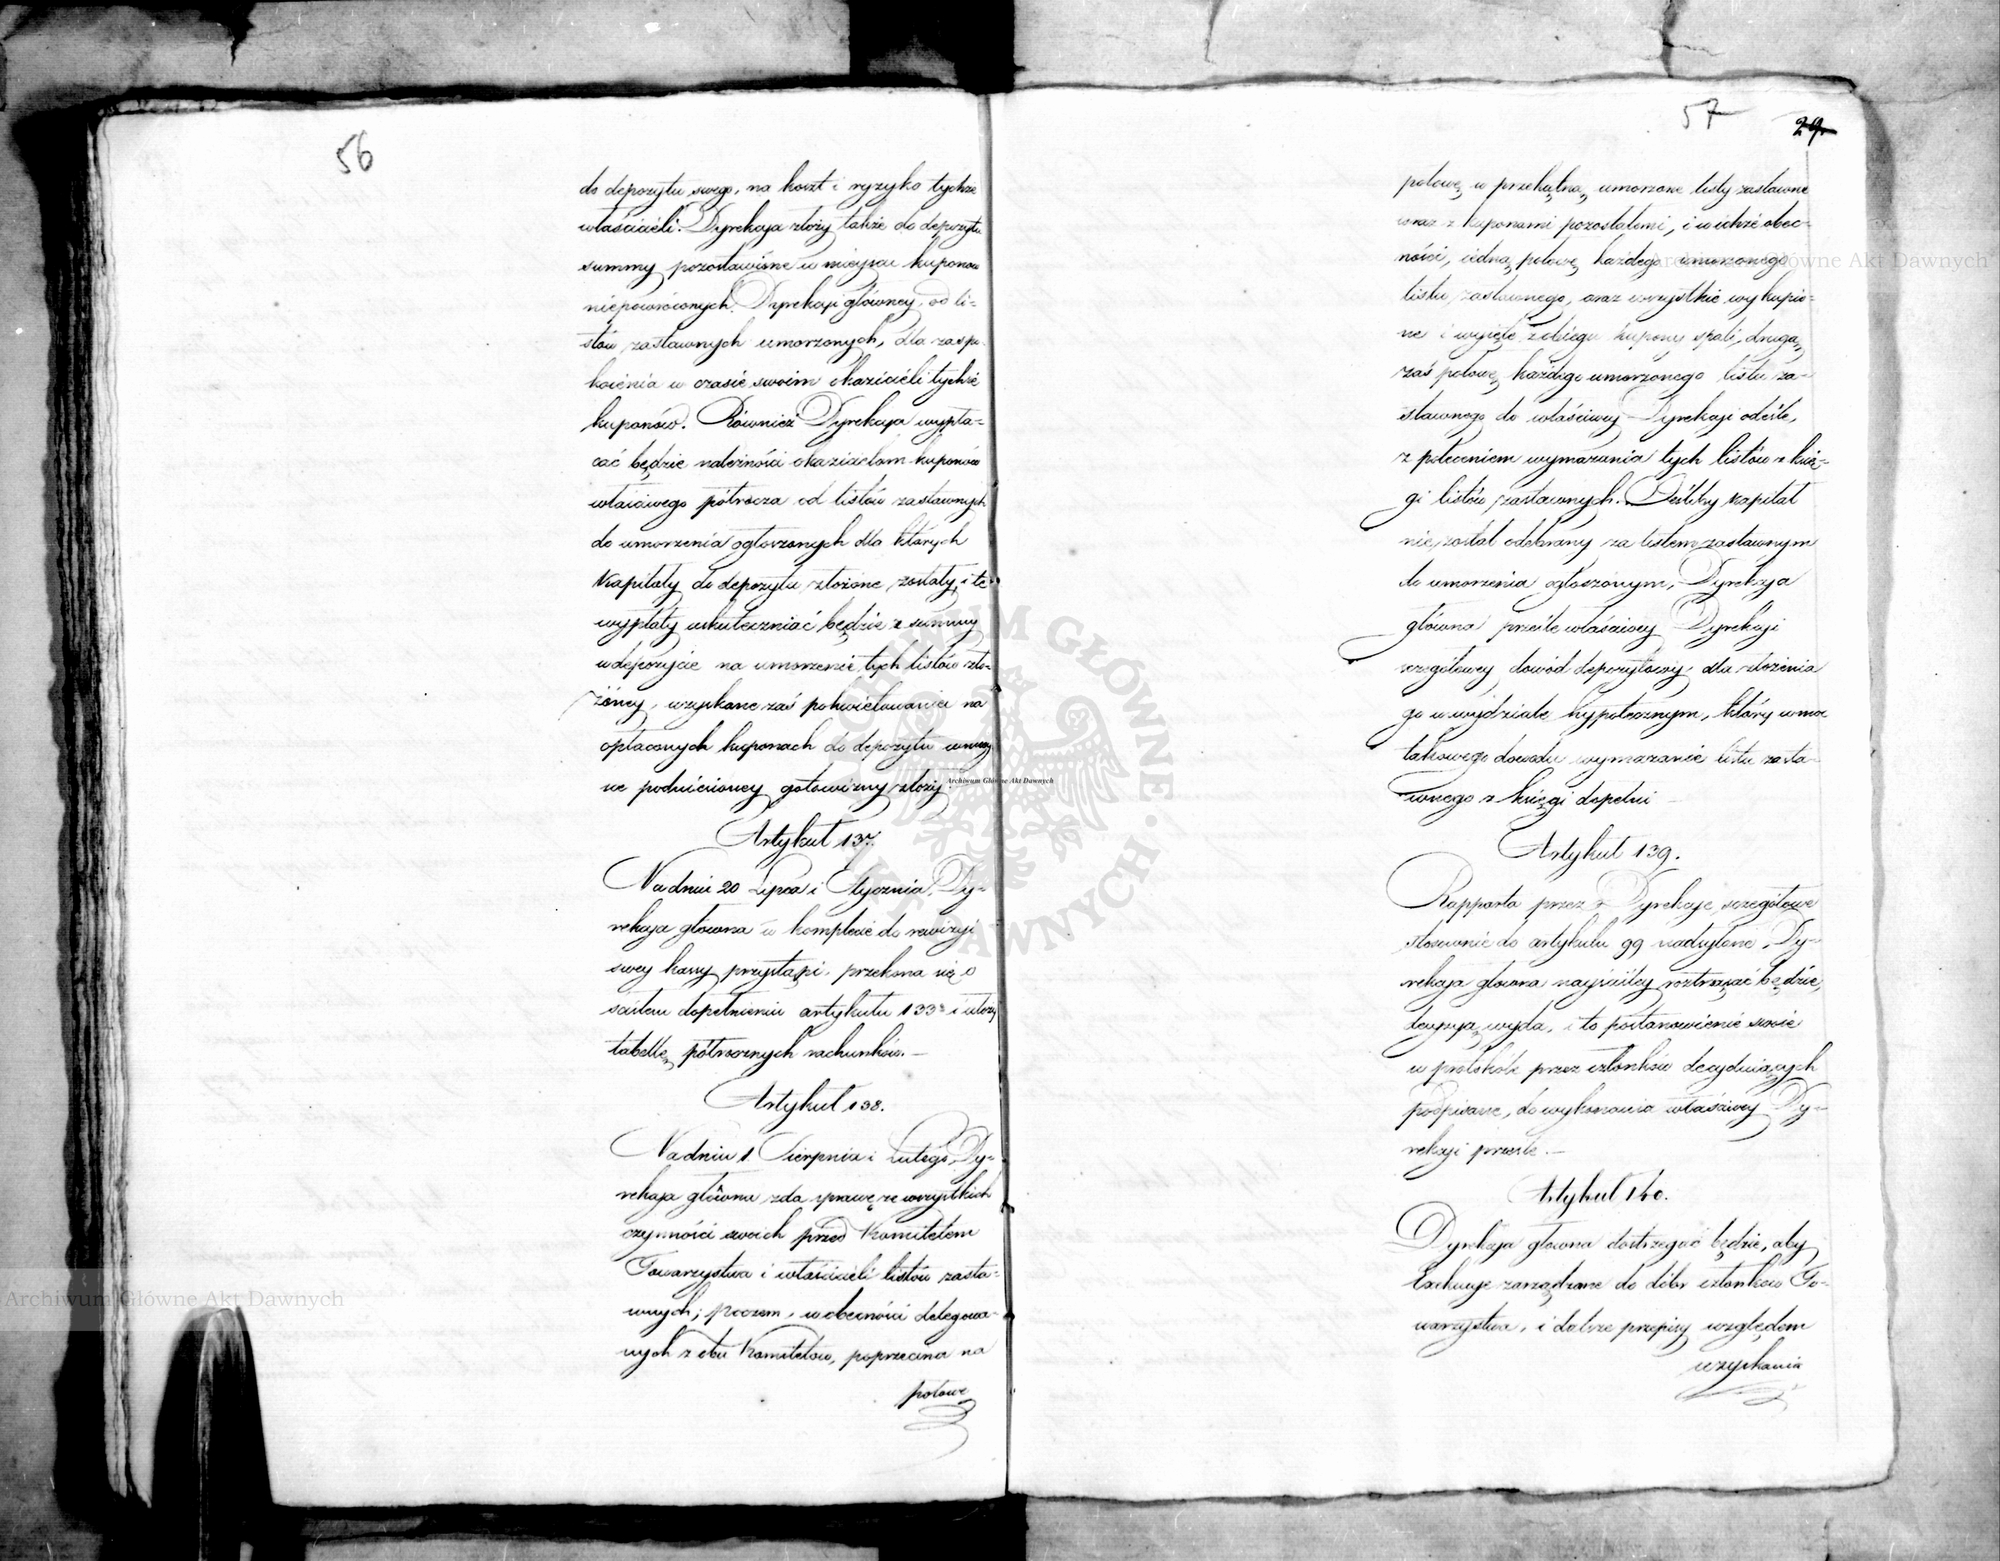 56
do depozytu swego, na koszt i ryzyko tychże
właścicieli. Dyrekcja złoży także do depozytu
summy pozostawione w miejscu kuponów
niepowróconych Dyrekcji główney, od li-
stów zastawnych umorzonych, dla zaspo-
koienia w czasie swoim okazicieli tychże
kuponów. Również Dyrekcja wypła-
cać będzie należności okazicielom kuponów
właściwego półrocza od listów zastawnych
do umorzenia ogłoszonych dla których
Kapitały do depozytu złożone zostały, i te
wypłaty uskuteczniać będzie z summy
w depozycie na umorzenie tych listów zło-
żoney, uzyskane zaś pokwitowania na
opłaconych kuponach do depozytu w miey-
sce podniesioney gotowizny złoży.
Artykuł 137.
Na dniu 20 Lipca i Stycznia, Dy-
rekcja główna w komplecie do rewizyi
swey kassy przystąpi, przekona się o
ścisłem dopełnieniu artykułu 133º i ułoży
tabellę półrocznych rachunków.—
Artykuł 138.
Na dniu 1 Sierpnia i Lutego, Dy-
rekcja główna zda sprawę ze wszystkich
czynności swoich przed Komitetem
Towarzystwa i właścicieli listów zasta-
wnych; poczem, w obecności delegowa-
nych z obu Komitetów, poprzecina na
połowę
57
29.
połowę w przekątną, umorzone listy zastawne
wraz z kuponami pozostałemi, i w ichże obec-
ności, iedną połowę każdego umorzonego
listu zastawnego, oraz wszystkie wykupio-
ne i wyięte z obiegu kupony spali, drugą
zaś połowę każdego umorzonego listu za-
stawnego do właściwey Dyrekcji odeśle,
z poleceniem wymazania tych listów z księ-
gi listów zastawnych. Jeśliby kapitał
nie został odebrany za listem zastawnym
do umorzenia ogłoszonym, Dyrekcja
główna prześle właściwey Dyrekcji
szczegółowey dowód depozytowy, dla złożenia
go w wydziale hypotecznym, który w moc
takowego dowodu wymazanie listu zasta-
wnego z księgi dopełni —
Artykuł 139.
Rapporta przez Dyrekcje szczegółowe
stosownie do artykułu 99 nadsyłane, Dy-
rekcja główna nayściśley roztrząsać będzie,
decyzyą wyda, i to postanowienie swoie
w protokóle przez członków decyduiących
podpisane, do wykonania właściwey Dy-
rekcji prześle.—
Artykuł 140.
Dyrekcja główna dostrzegać będzie, aby
Exekucye zarządzane do dóbr członków To-
warzystwa, i dalsze przepisy względem
uzyskania
Archiwum Główne Akt Dawnych
Archiwum Główne Akt Dawnych
Archiwum Główne Akt Dawnych
ARCHIWUM GŁÓWNE AKT DAWNYCH